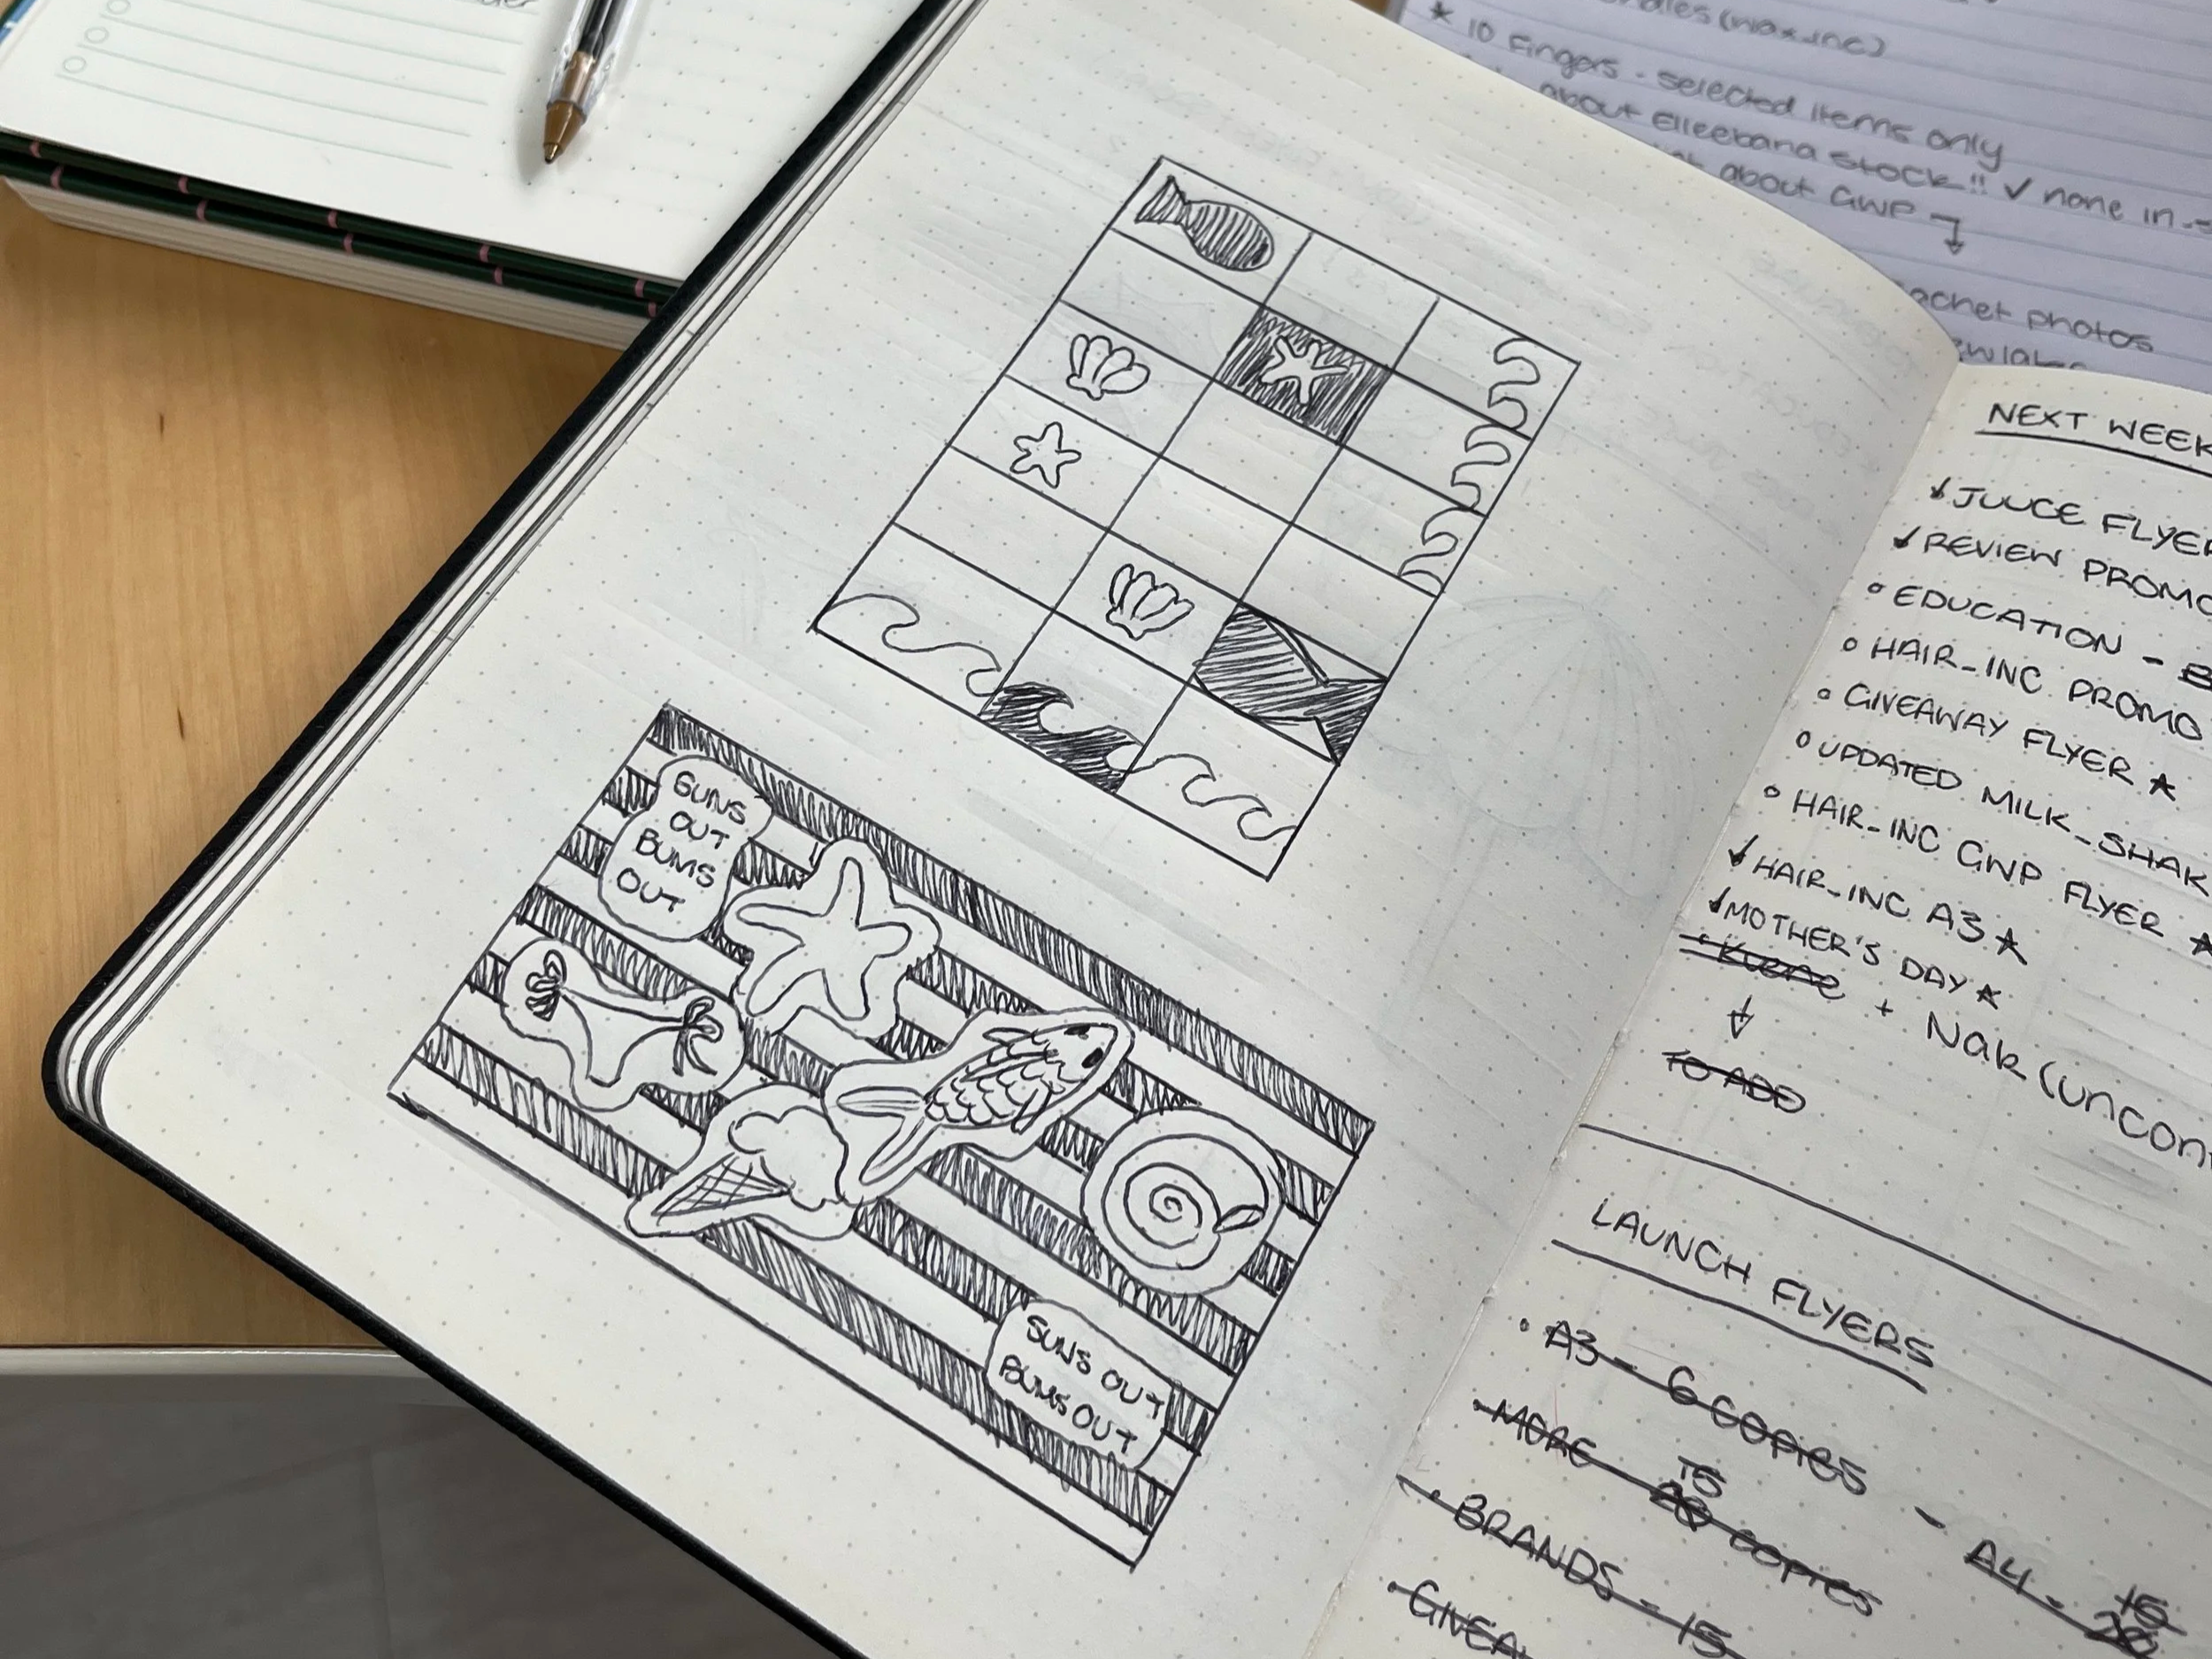 (wax.inc)
★ 10 Fingers - selected items only
about Elleebana stock!! ✓ none in
about GWP
photos
SUNS
OUT
BUMS
OUT
SUNS OUT
BUMS OUT
NEXT WEEK
✓ JUUCE FLYER
✓ REVIEW PROMO
• EDUCATION -
• HAIR-INC PROMO
• GIVEAWAY FLYER ★
• UPDATED MILK-SHAK
• HAIR-INC GWP FLYER ★
✓ HAIR-INC A3 ★
✓ MOTHER'S DAY ★
+ Nak (uncon
↓
TO ADD
LAUNCH FLYERS
• A3 - 6 COPIES - A4 - 15
• MORE - 15 COPIES
• BRANDS - 15
• GIVEA